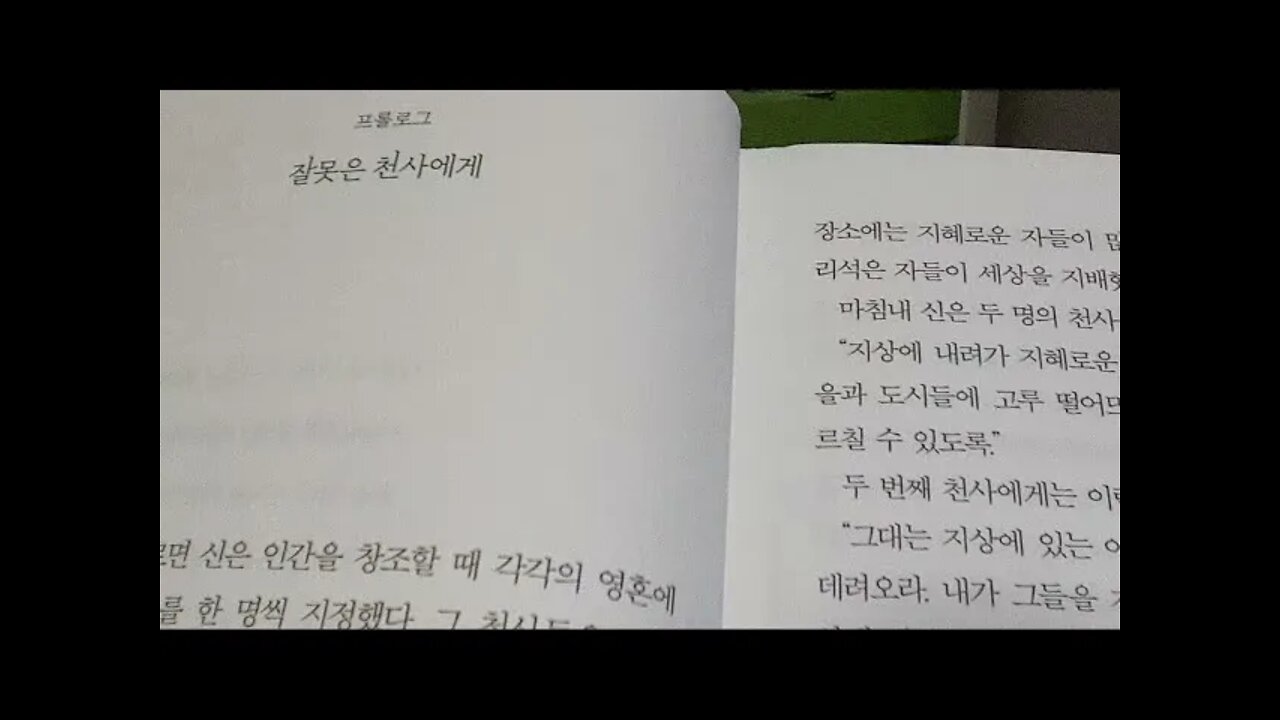 프롤로그
잘못은 천사에게
르면 신은 인간을 창조할 때 각각의 영혼에
를 한 명씩 지정했다. 그
장소에는 지혜로운 자들이
리석은 자들이 세상을
마침내 신은 두 명의 천사
“지상에 내려가 지혜로운
을과 도시들에 고루
르칠 수 있도록.”
두 번째 천사에게는
“그대는 지상에 있는
데려오라. 내가 그들을